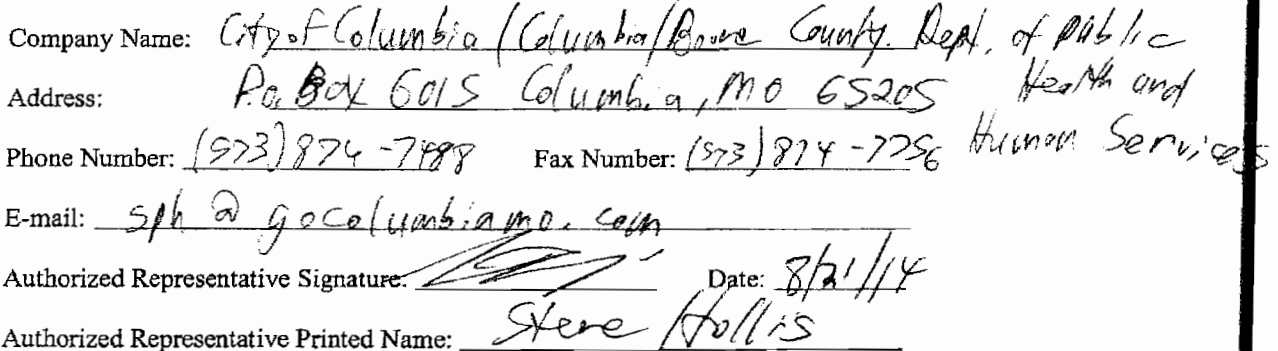 Company Name: City of Columbia / Columbia/Boone County. Dept. of Public
Address: P.O. Box 6015 Columbia, MO 65205 Health and
Phone Number: (573) 874-7488 Fax Number: (573) 874-7756 Human Services
E-mail: sph @ gocolumbiamo.com
Authorized Representative Signature: Date: 8/21/14
Authorized Representative Printed Name: Steve Hollis